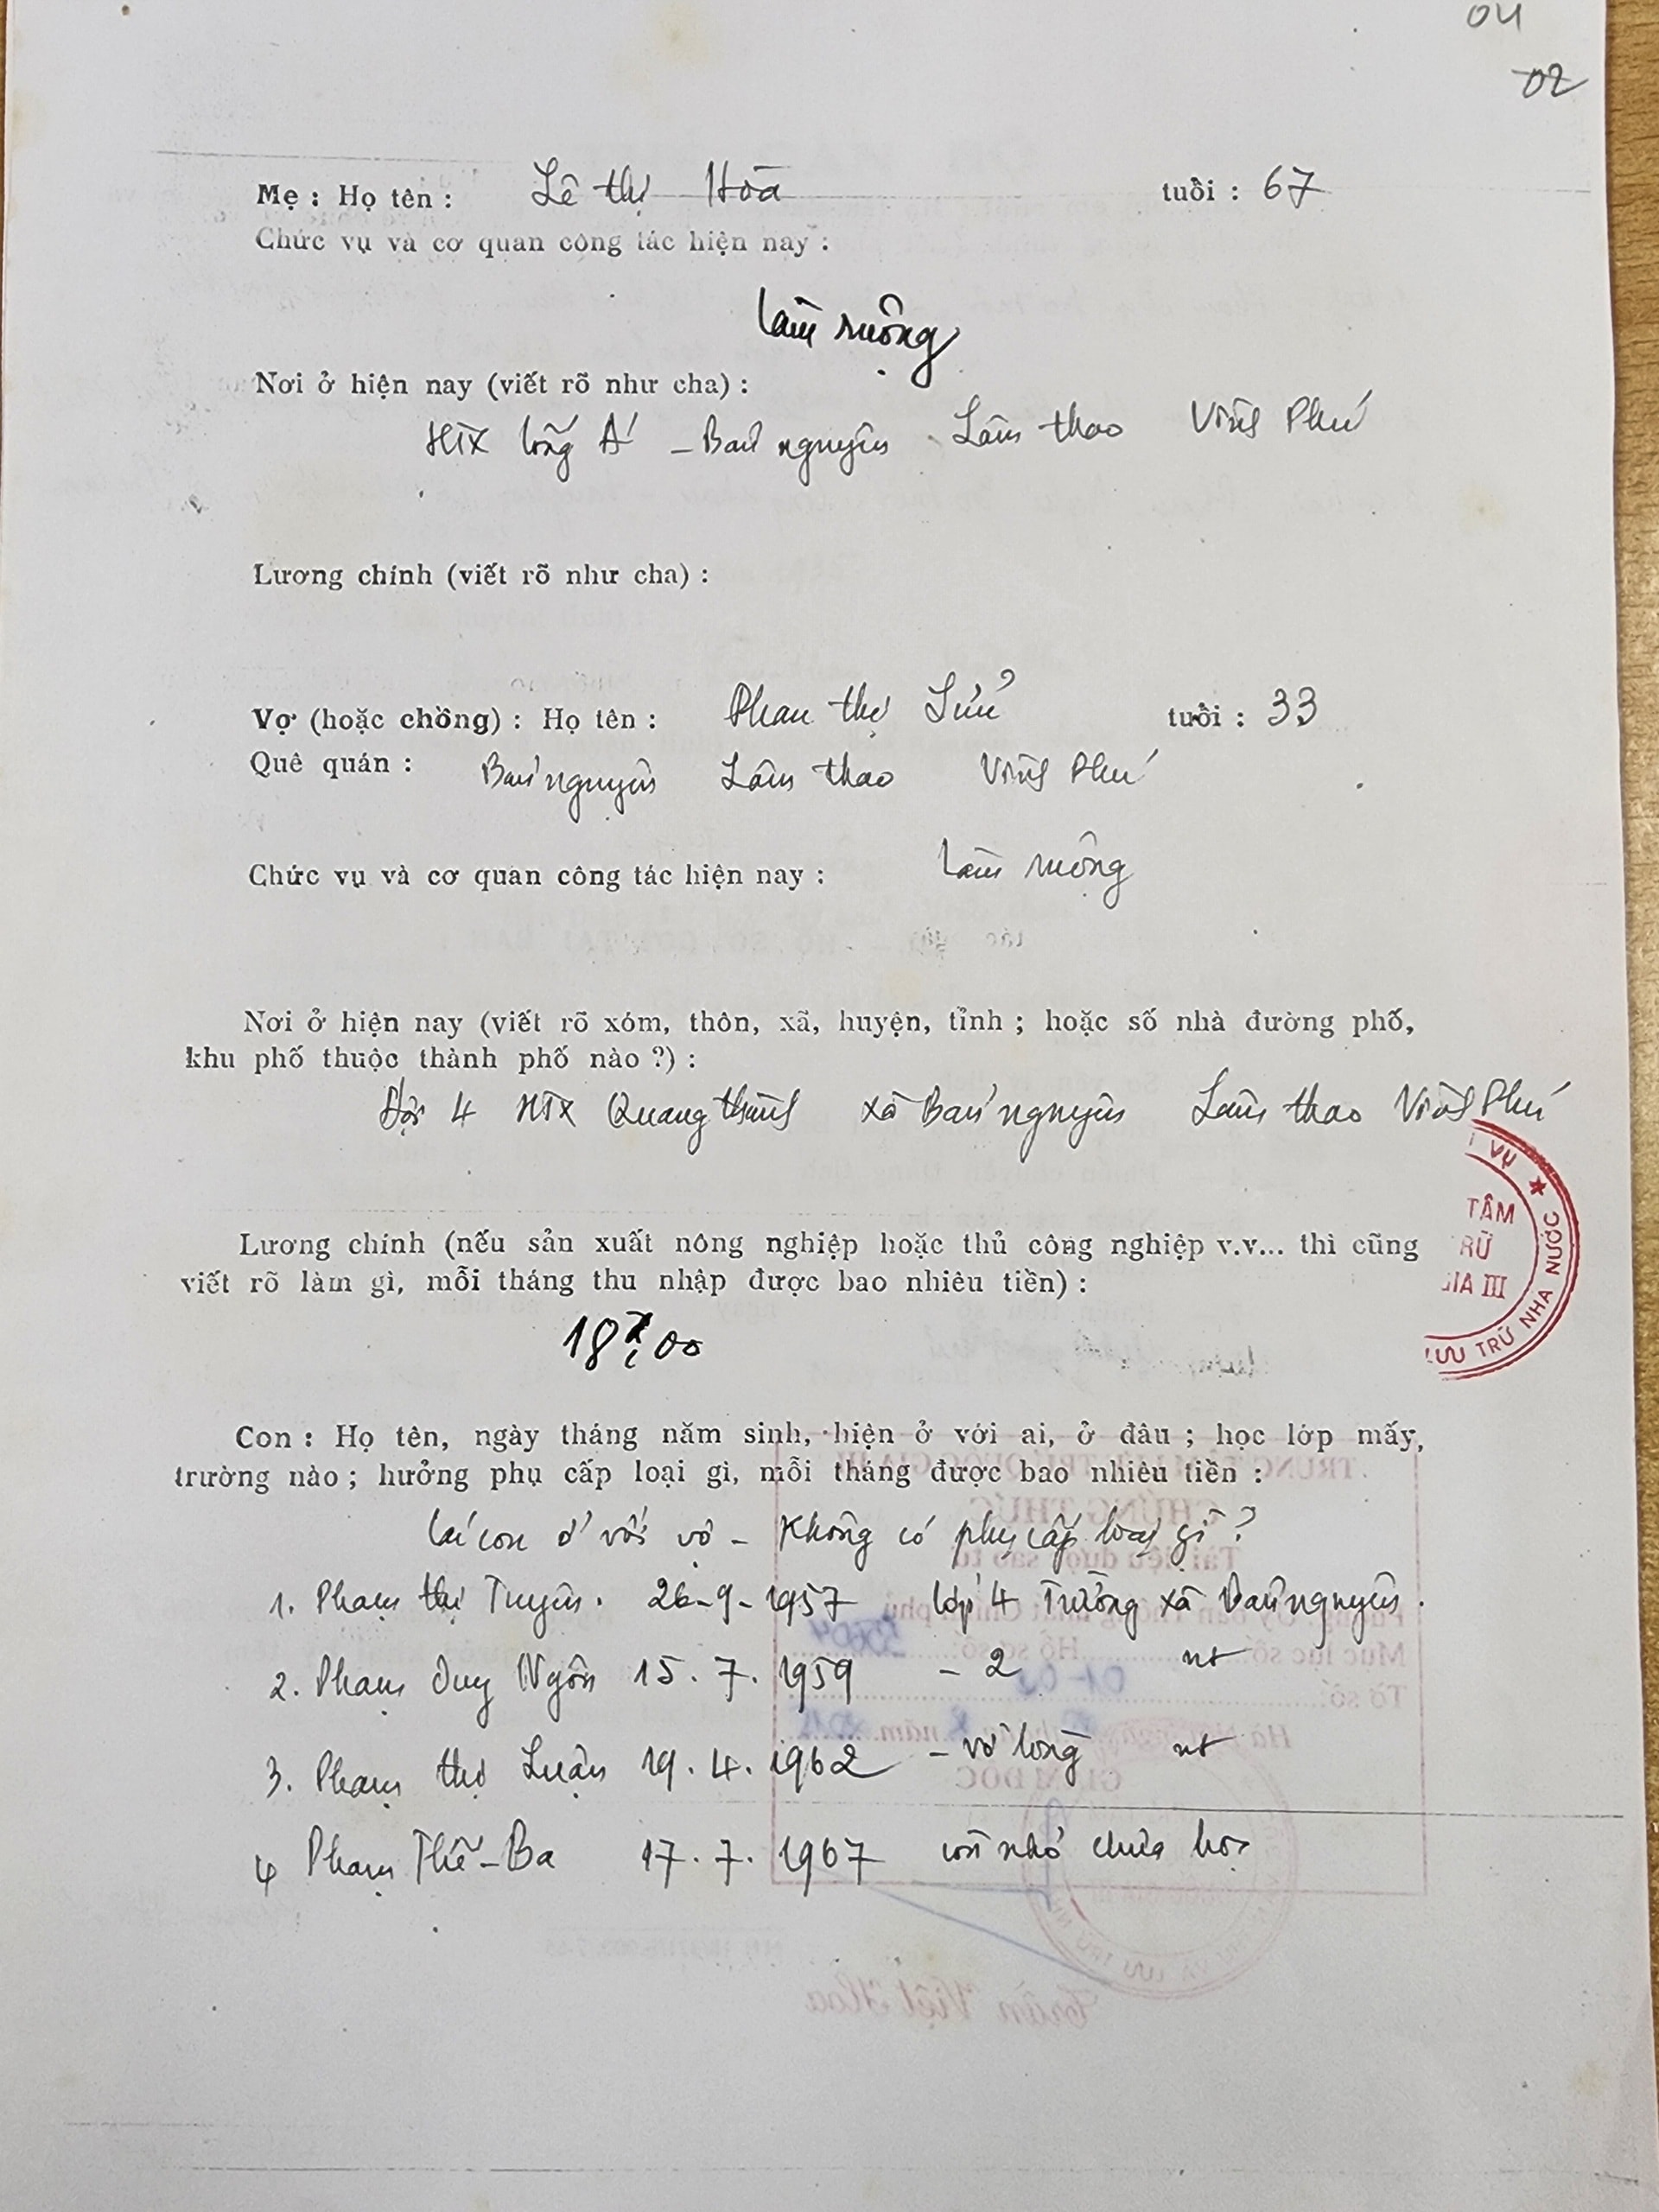 04
02
Mẹ : Họ tên : Lê thị Hòa tuổi : 67
Chức vụ và cơ quan công tác hiện nay :
làm ruộng
Nơi ở hiện nay (viết rõ như cha) :
HTX Á - Bản nguyên Lâm thao Vĩnh Phú
Lương chính (viết rõ như cha) :
Vợ (hoặc chồng) : Họ tên : Phan thị Sửu tuổi : 33
Quê quán : Bản nguyên Lâm thao Vĩnh Phú
Chức vụ và cơ quan công tác hiện nay : làm ruộng
Nơi ở hiện nay (viết rõ xóm, thôn, xã, huyện, tỉnh ; hoặc số nhà đường phố,
khu phố thuộc thành phố nào ?) :
Đội 4 HTX Quang thịnh xã Bản nguyên Lâm thao Vĩnh Phú
VỤ ★
TÂM
RỮ
GIA III
LƯU TRỮ NHÀ NƯỚC
Lương chính (nếu sản xuất nông nghiệp hoặc thủ công nghiệp v.v... thì cũng
viết rõ làm gì, mỗi tháng thu nhập được bao nhiêu tiền) :
18đ,00
Con : Họ tên, ngày tháng năm sinh, hiện ở với ai, ở đâu ; học lớp mấy,
trường nào ; hưởng phụ cấp loại gì, mỗi tháng được bao nhiêu tiền :
con ở với vợ - không có phụ cấp loại gì ?
1. Phạm thị Tuyên. 26-9-1957 lớp 4 Trường xã Bản nguyên.
2. Phạm Duy Ngôn 15.7.1959 - 2 nt
3. Phạm thị Luận 19.4.1962 - vỡ lòng nt
4 Phạm Thế-Ba 17.7.1967 còn nhỏ chưa học
TRUNG TÂM LƯU TRỮ QUỐC GIA III
CHỨNG THỰC
Tài liệu được sao từ
Mục lục số: Hồ sơ số: 35604
Tờ số: 01-03
Hà Nội, ngày năm
GIÁM ĐỐC
Trần Việt Hoa